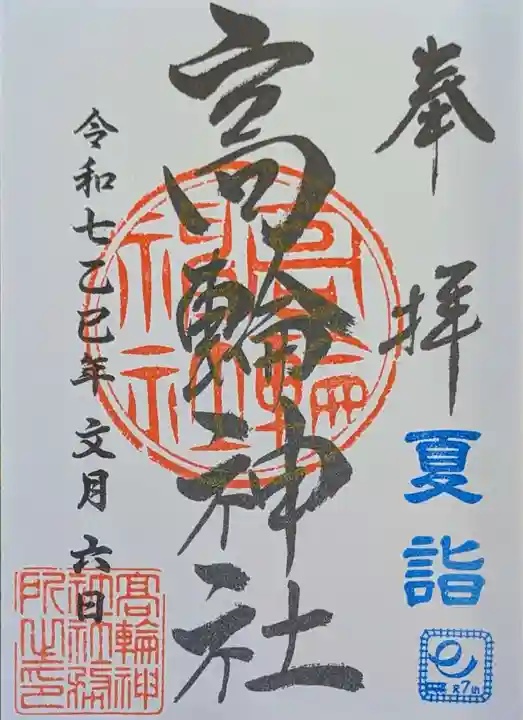 奉拝
夏詣
R7
高輪神社
高輪神社
令和七乙巳年 文月 六日
高輪神社社務所之印